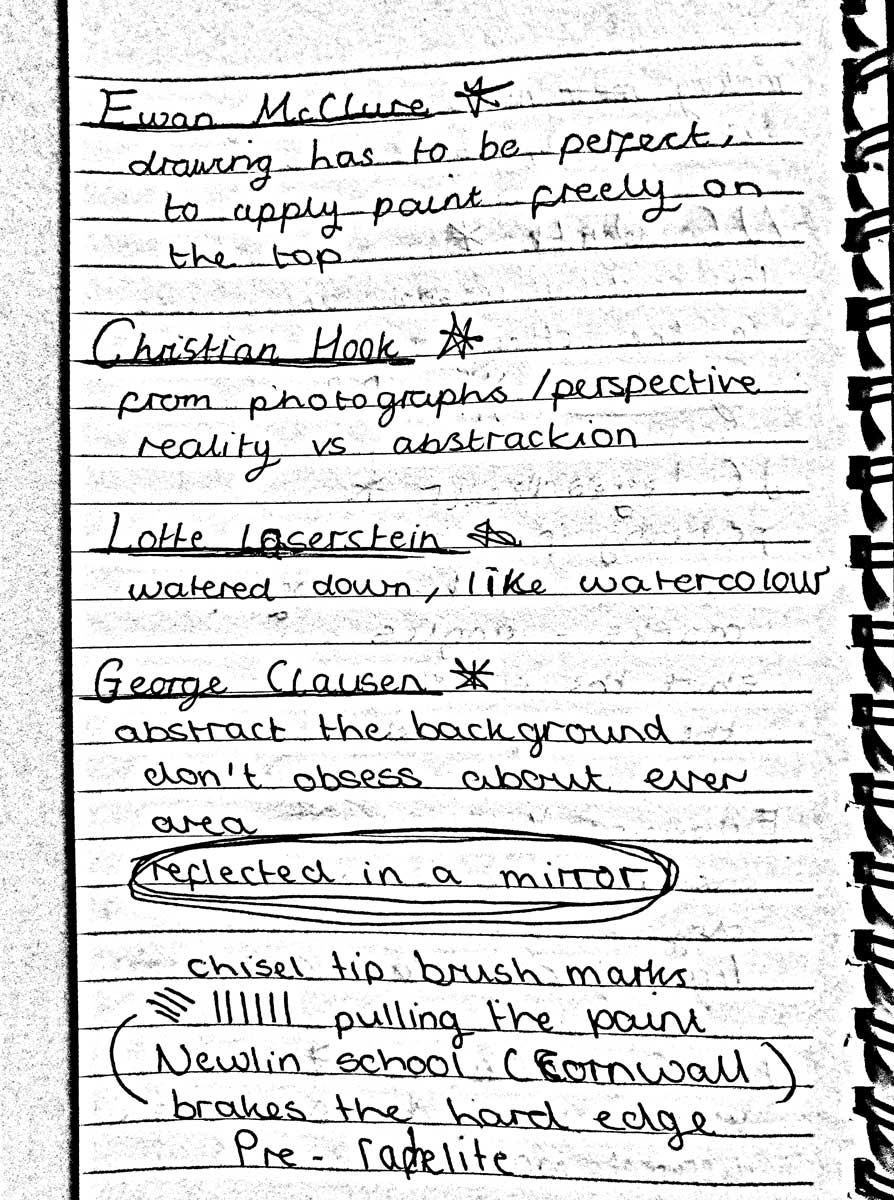 Ewan McClure
drawing has to be perfect,
to apply paint freely on
the top
Christian Hook
from photographs / perspective
reality vs abstrackion
Lotte Laserstein
watered down, like watercolour
George Clausen
abstract the background
don't obsess about ever
area
reflected in a mirror
chisel tip brush marks
pulling the paint
Newlin school (Cornwall)
brakes the hard edge
Pre-